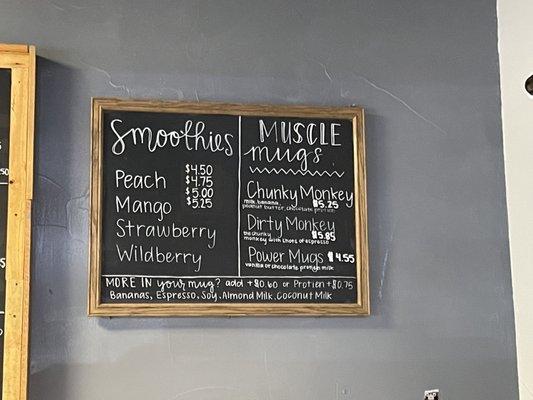 Smoothies
Peach
Mango
Strawberry
Wildberry
$4.50
$4.75
$5.00
$5.25
MUSCLE
mugs
Chunky Monkey
milk, banana,
peanut butter, chocolate protein $5.25
Dirty Monkey
the chunky $5.85
monkey with shots of espresso
Power Mugs $4.55
vanilla or chocolate protein milk
MORE IN your mug? add +$0.60 or Protien +$0.75
Bananas, Espresso, Soy, Almond Milk, Coconut Milk